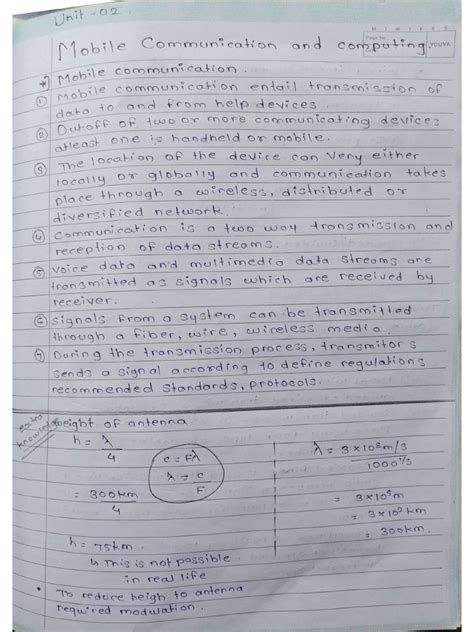 Unit - 02.
M T W T F S S
Page No.
YOUVA
Mobile Communication and computing
* Mobile communication.
① Mobile communication entail transmission of
data to and from help devices.
② Outoff of two or more communicating devices
atleast one is handheld or mobile.
③ The location of the device can very either
locally or globally and communication takes
place through a wireless, distributed or
diversified network.
④ Communication is a two way transmission and
reception of data streams.
⑤ Voice data and multimedia data streams are
transmitted as signals which are received by
receiver.
⑥ signals from a system can be transmitted
through a fiber, wire, wireless media.
⑦ During the transmission process, transmitors
sends a signal according to define regulations
recommended standards, protocols.
extra
knowledge
height of antenna
h = λ/4
c = Fλ
λ = c/F
λ = 3×10⁸m/s / 1000 1/s
= 300km/4
= 3×10⁵m
= 3×10² km
= 300km.
h = 75km.
↳ This is not possible
in real life
• To reduce heigh to antenna
required modulation.